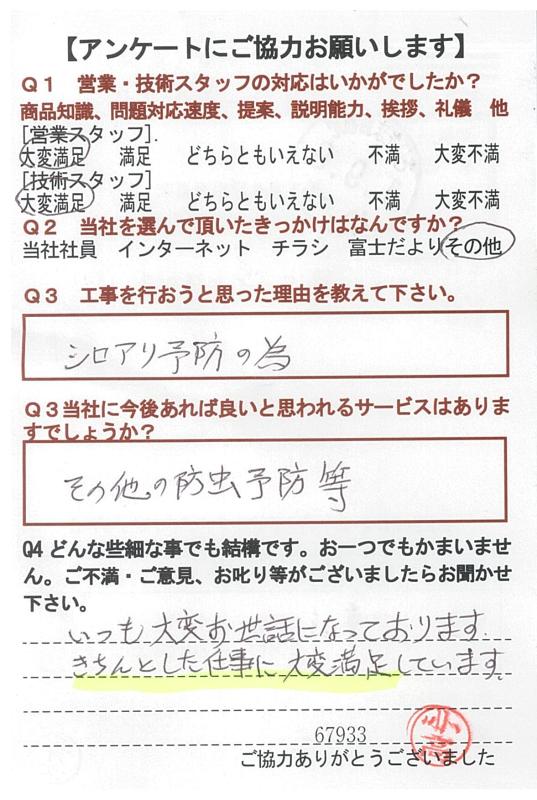 【アンケートにご協力お願いします】
Q1 営業・技術スタッフの対応はいかがでしたか？
商品知識、問題対応速度、提案、説明能力、挨拶、礼儀 他
[営業スタッフ].
大変満足 満足 どちらともいえない 不満 大変不満
[技術スタッフ]
大変満足 満足 どちらともいえない 不満 大変不満
Q2 当社を選んで頂いたきっかけはなんですか？
当社社員 インターネット チラシ 富士だより その他
Q3 工事を行おうと思った理由を教えて下さい。
シロアリ予防の為
Q3当社に今後あれば良いと思われるサービスはありま
すでしょうか？
その他の防虫予防等
Q4 どんな些細な事でも結構です。お一つでもかまいませ
ん。ご不満・ご意見、お叱り等がございましたらお聞かせ
下さい。
いつも大変お世話になっております.
きちんとした仕事に大変満足しています。
67933
ご協力ありがとうございました